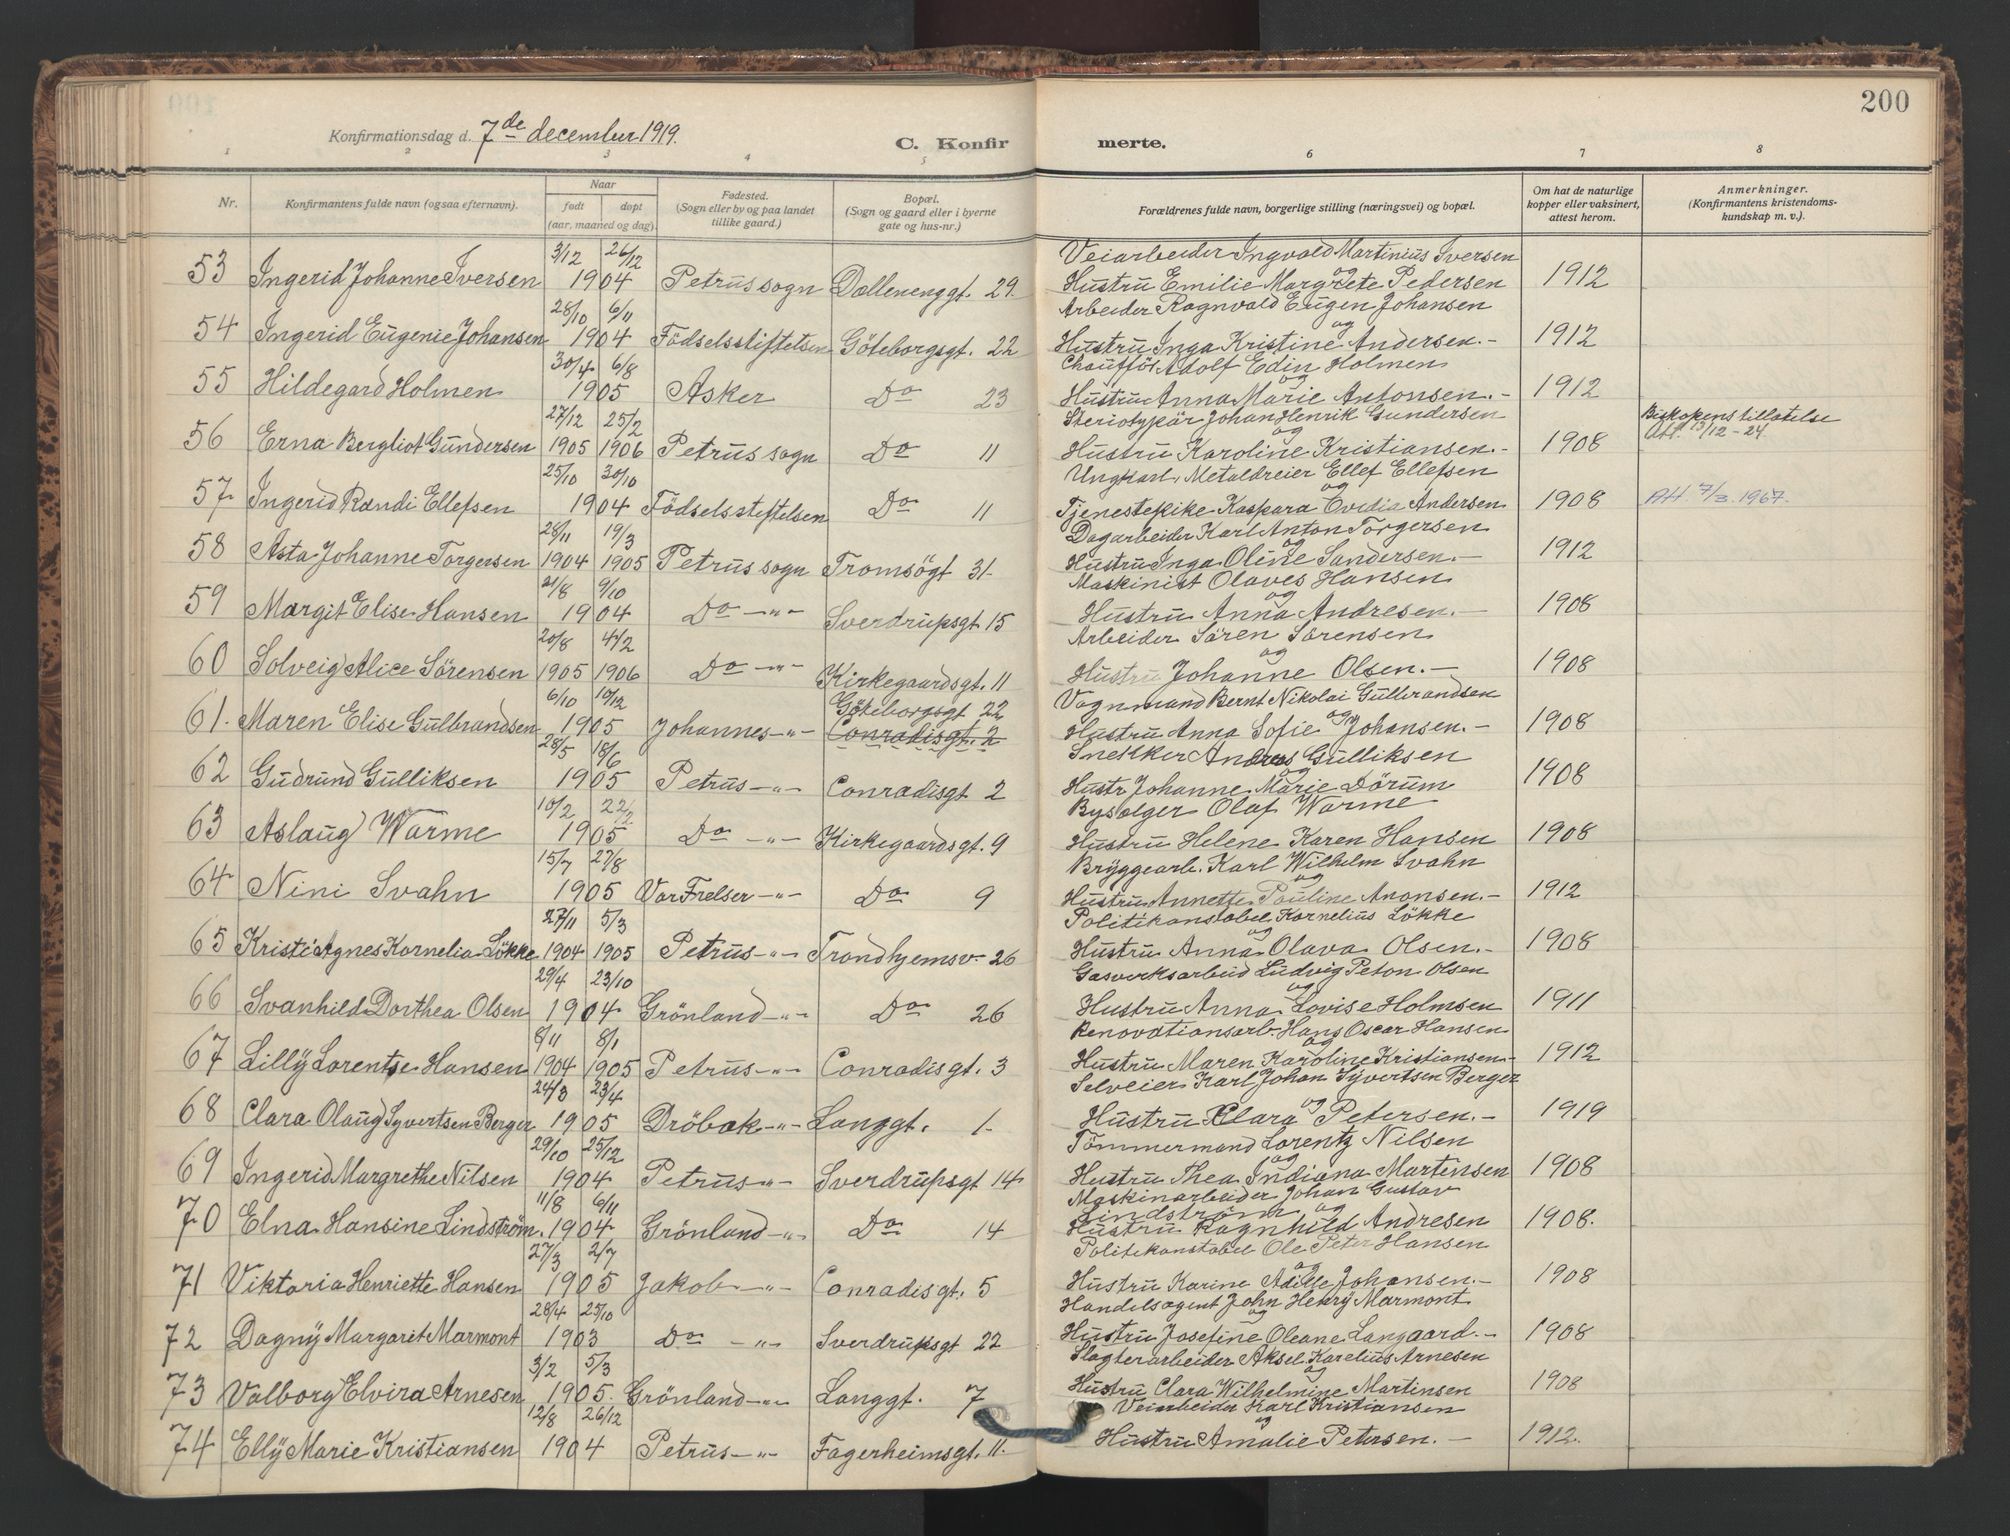 200
Konfirmationsdag d. 7de december 1919.
C. Konfir merte.
1 2 3 4 5 6 7 8
Nr.
Konfirmantens fulde navn (ogsaa efternavn).
Naar
født døpt
(aar, maaned og dag).
Fødested.
(Sogn eller by og paa landet
tillike gaard.)
Bopæl.
(Sogn og gaard eller i byerne
gate og hus-nr.)
Forældrenes fulde navn, borgerlige stilling (næringsvei) og bopæl.
Om hat de naturlige
kopper eller vaksinert,
attest herom.
Anmerkninger.
(Konfirmantens kristendoms-
kundskap m. v.).
3/12 26/12 Veiarbeider Ingvald Martinius Iversen
og
53 Ingerid Johanne Iversen 1904 Petrus sogn Dællenenggt. 29. Hustru Emilie Margrete Pedersen 1912
28/10 6/11 Arbeider Ragnvald Eugen Johansen
og
54 Ingerid Eugenie Johansen 1904 Födselsstiftelsen Göteborgsgt. 22 Hustru Inga Kristine Andersen.- 1912
30/4 6/8 Chaufför Adolf Edin Holmen
og
55 Hildegard Holmen 1905 Asker Do 23 Hustru Anna Marie Antonsen.- 1912
27/12 25/2 Steriotypör Johan Henrik Gundersen Biskopens tillatelse
og Att. 13/12-24.
56 Erna Bergliot Gundersen 1905 1906 Petrus sogn Do 11 Hustru Karoline Kristiansen.- 1908
25/10 30/10 Ungkarl, Metaldreier Ellef Ellefsen
og
57 Ingerid Randi Ellefsen 1904 Födselsstiftelsen Do 11 Tjenestepike Kaspara Ovidia Andersen 1908 Att 7/3 1967.
28/11 19/3 Dagarbeider Karl Anton Torgersen
og
58 Asta Johanne Torgersen 1904 1905 Petrus sogn Tromsögt 31- Hustru Inga Oline Sandersen.- 1912
21/8 9/10 Maskinist Olaves Hansen
og
59 Margit Elise Hansen 1904 Do -"- Sverdrupsgt 15 Hustru Anna Andresen.- 1908
20/8 4/2 Arbeider Sören Sörensen
og
60 Solveig Alice Sörensen 1905 1906 Do -"- Kirkegaardsgt. 11 Hustru Johanne Olsen.- 1908
6/10 10/12 Göteborgsgt 22 Vognmand Bernt Nikolai Gulbrandsen
og
61. Maren Elise Gulbrandsen 1905 Johannes-"- Conradisgt. 2 Hustru Anna Sofie Johansen.- 1908
28/5 18/6 Snekker Andreas Gulliksen
og
62 Gudrund Gulliksen 1905 Petrus-"- Conradisgt 2 Hustr Johanne Marie Dörum 1908
10/2 22/2 Bysolger Olaf Warme
63 Aslaug Warme 1905 Do -"- Kirkegaardsgt. 9 Hustru Helene Karen Hansen 1908
15/7 27/8 Bryggearb. Karl Wilhelm Svahn
og
64 Nini Svahn 1905 Vor Frelser-"- Do 9 Hustru Annette Pauline Anonsen.- 1912
27/11 5/3 Politikonstabel Kornelius Lökke
og
65 Kristi Agnes Kornelia Lökke 1904 1905 Petrus-"- Trondhjemsv. 26 Hustru Anna Olava Olsen.- 1908
29/4 23/10 Gasverksarbeid Ludvig Peton Olsen
og
66 Svanhild Dorthea Olsen 1904 Grönland-"- Do 26 Hustru Anna Lovise Holmsen 1911
8/11 8/1 Renovationsarb. Hans Oscar Hansen
og
67 Lilly Lorentse Hansen 1904 1905 Petrus-"- Conradisgt. 3 Hustru Maren Karoline Kristiansen- 1912
24/3 23/4 Selveier Karl Johan Syvertsen Berger
og
68 Clara Olaug Syvertsen Berger 1905 Dröbak-"- Langgt. 1- Hustru Clara Petersen.- 1919
29/10 25/12 Tömmermand Lorentz Nilsen
og
69 Ingerid Margrethe Nilsen 1904 Petrus"- Sverdrupsgt 14 Hustru Thea Indiana Martinsen 1908
11/8 6/11 Maskinarbeider Johan Gustav
Lindström og
70 Elna Hansine Lindström. 1904 Grönland-"- Do 14 Hustru Ragnhild Andresen 1908.
27/3 2/7 Politikonstabel Ole Peter Hansen
og
71 Viktoria Henriette Hansen 1905 Jakob-"- Conradisgt. 5 Hustru Karine Adille Johansen.- 1908
28/4 25/10 Handelsagent John Henry Marmont
og
72 Dagny Margarit Marmont 1903 Do -"- Sverdrupsgt 22 Hustru Josefine Oleane Langaard.- 1908
3/2 5/3 Slagterarbeider Aksel Karelius Arnesen
og
73 Valborg Elvira Arnesen 1905. Grönland-"- Langgt. 7 Hustru Clara Wilhelmine Martinsen 1908
12/8 26/12 Veiarbeider Karl Kristiansen
og
74 Elly Marie Kristiansen 1904 Petrus-"- Fagerheimsgt. 11. Hustru Amalie Petersen.- 1912.